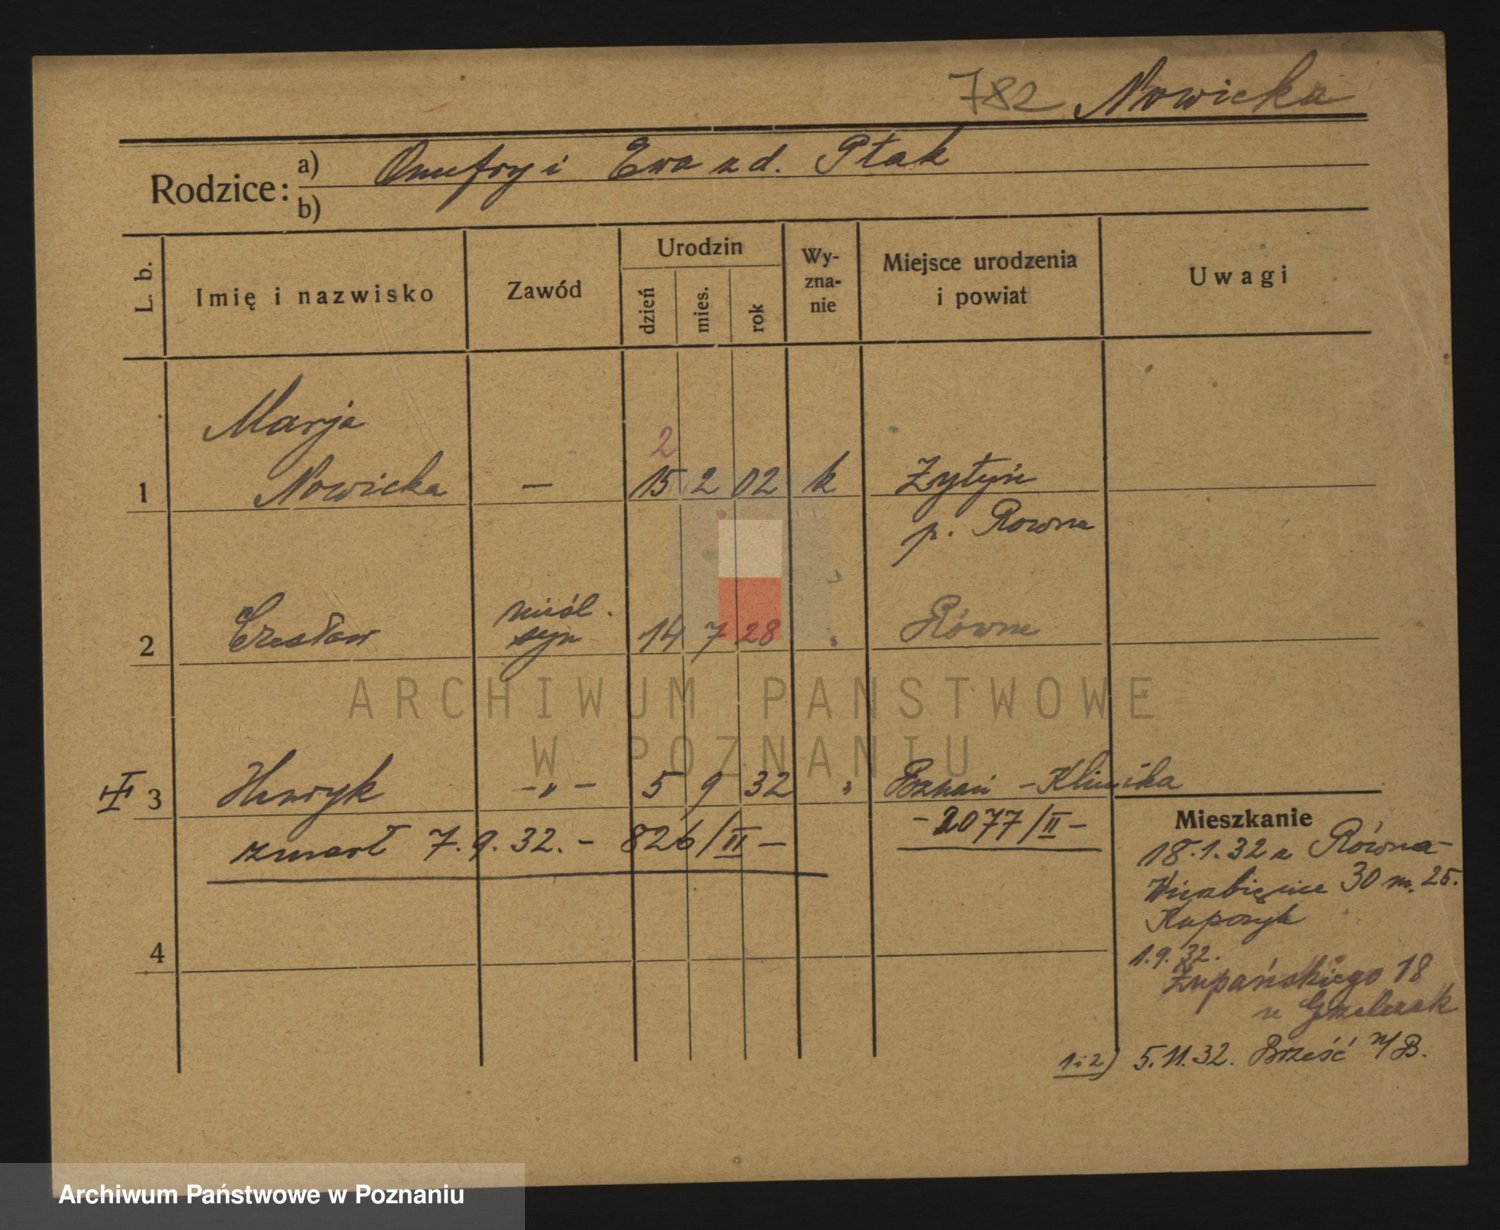 782 Nowicka
Rodzice:
a) Onufry i Ewa z d. Ptak
b)
L. b.
Imię i nazwisko
Zawód
Urodzin
dzień
mies.
rok
Wy-
zna-
nie
Miejsce urodzenia
i powiat
Uwagi
Marja
2
1 Nowicka — 15 2 02 k Żytyń
p. Rowne
nieśl.
2 Czesław syn 14 7 28 " Równe
ARCHIWUM PAŃSTWOWE
W POZNANIU
3 Henryk -"- 5 9 32 " Poznań - Klinika
zmarł 7.9.32. - 826/II - - 2077/II -
4
Mieszkanie
18.1.32 z Równa -
30 m. 25.
Kaporyk
1.9.32.
Żupańskiego 18
u Grzelczak
1 i 2) 5.11.32. Brześć n/B.
Archiwum Państwowe w Poznaniu